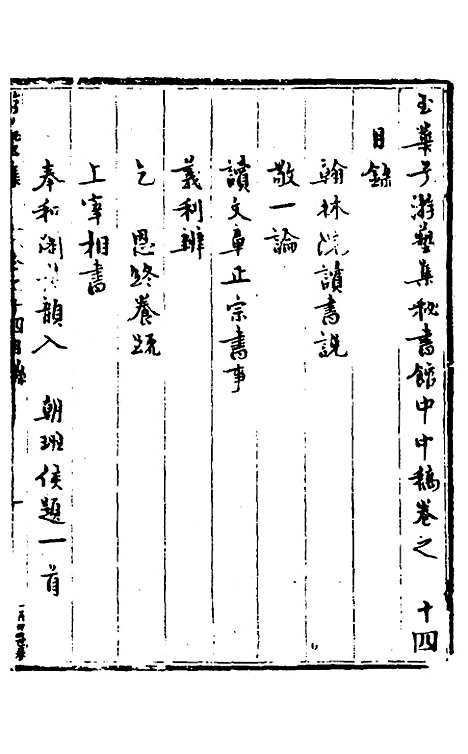 玉蘂子游藝集秘書館中中稿卷之十四
目錄
翰林院讀書說
敬一論
讀文章正宗書事
義利辨
乞 恩終養疏
上宰相書
奉和閣 韻入 朝班侯題一首